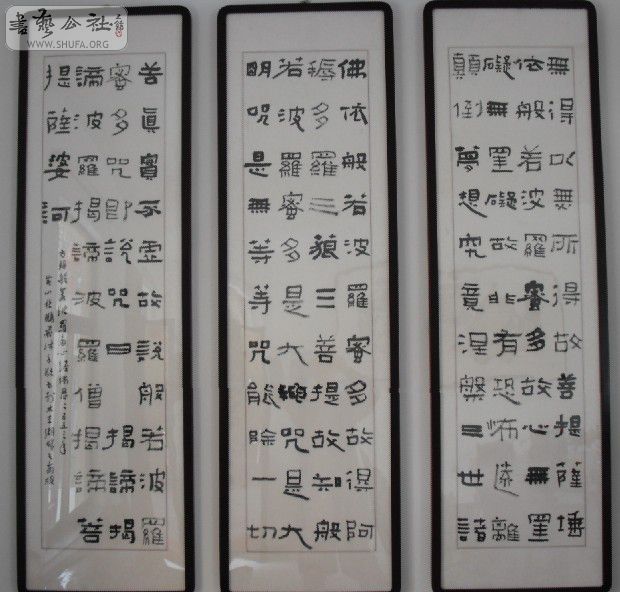 書藝公社
WWW.SHUFA.ORG
無得以無所得故菩提薩埵
依般若波羅蜜多故心無罣
礙無罣礙故非有恐怖遠離
顛倒夢想究竟涅槃三世諸
佛依般若波羅蜜多故得阿
耨多羅三藐三菩提故知般
若波羅蜜多是大神咒是大
明咒是無等等咒能除一切
苦真實不虛故說般若波羅
蜜多咒即說咒曰揭諦揭
諦波羅揭諦波羅僧揭諦菩
提薩婆訶